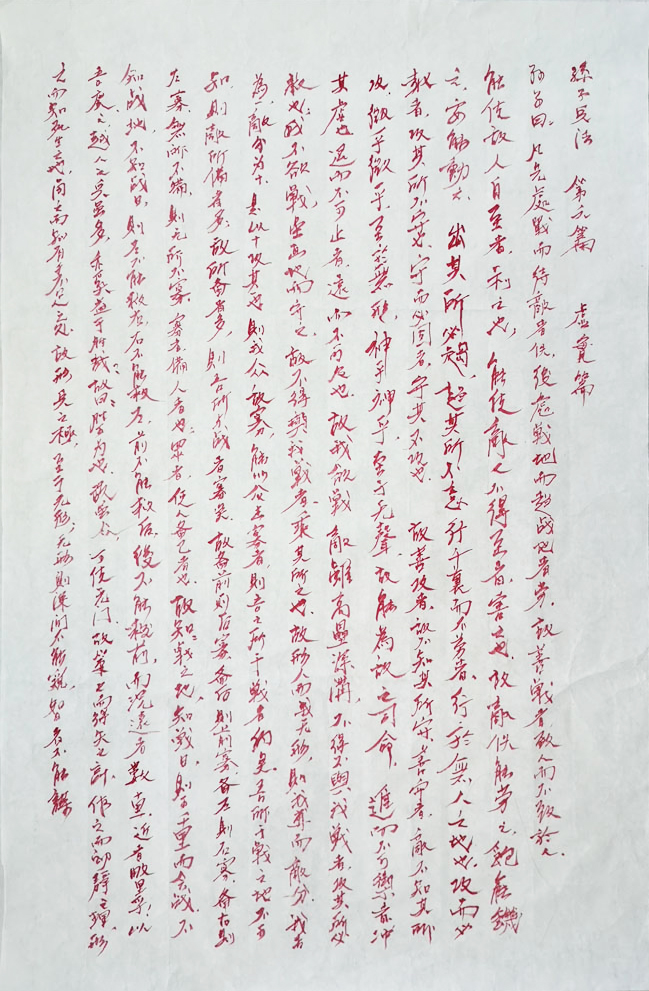 孫子兵法 第六篇 虛實篇
孫子曰：凡先處戰而待敵者佚，後處戰地而趨战地者劳，故善戰者，致人而不致於人。
能使敌人自至者，利之也，能使敵人不得至者，害之也，故敵佚能劳之，飽能饑
之，安能動之。出其所必趨，趨其所不意，行千里而不劳者，行於無人之地也，攻而必
者，攻其所不守也，守而必固者，守其不攻也。故善攻者，敌不知其所守，善守者，敵不知其所
攻，微乎微乎，至於無形，神乎神乎，至于无聲，故能為敌之司命，進而不可禦者，冲
其虛也，退而不可止者，遠而不可及也，故我欲戰，敵雖高壘深溝，不得不與我戰者，攻其所必
救也，我不欲戰，画地而守之，故不得與我戰者，乖其所之也，故形人而我无形，則我專而敵分，我專
為一，敵分为十，是以十攻其也，則我众敌寡，能以众击寡者，則吾之所于戰者約矣，吾所于戰之地不可
知，則敵所備者多，敌所备者多，則吾所戰者寡矣，故备前則后寡，备后則前寡，备左則右寡，备右則
左寡，無所不備，則无所不寡，寡者備人者也，眾者，使人备己者也，故知戰之地，知戰日，則千里而会战，不
知战地，不知战日，則左不能救右，右不能救左，前不能救后，後不能救前，而况遠者數里，近者數里乎，以
吾度之，越人之兵虽多，亦奚益于勝哉，故曰：勝可为也，敵虽众，可使无鬥，故策之而得失之計，作之而動靜之理，形
之而知死生之地，角之而知有余不足之處，故形兵之極，至于无形，无形則深间不能窺，智者不能謀